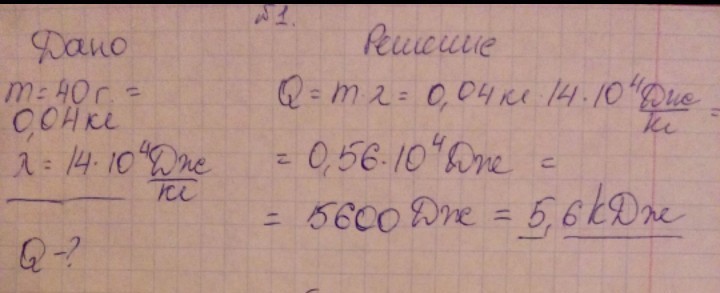 №1.
Дано
m = 40 г. =
0,04 кг
λ = 14·10⁴ Дж/кг
Q - ?
Решение
Q = m·λ = 0,04 кг · 14·10⁴ Дж/кг =
= 0,56·10⁴ Дж =
= 5600 Дж = 5,6 kДж